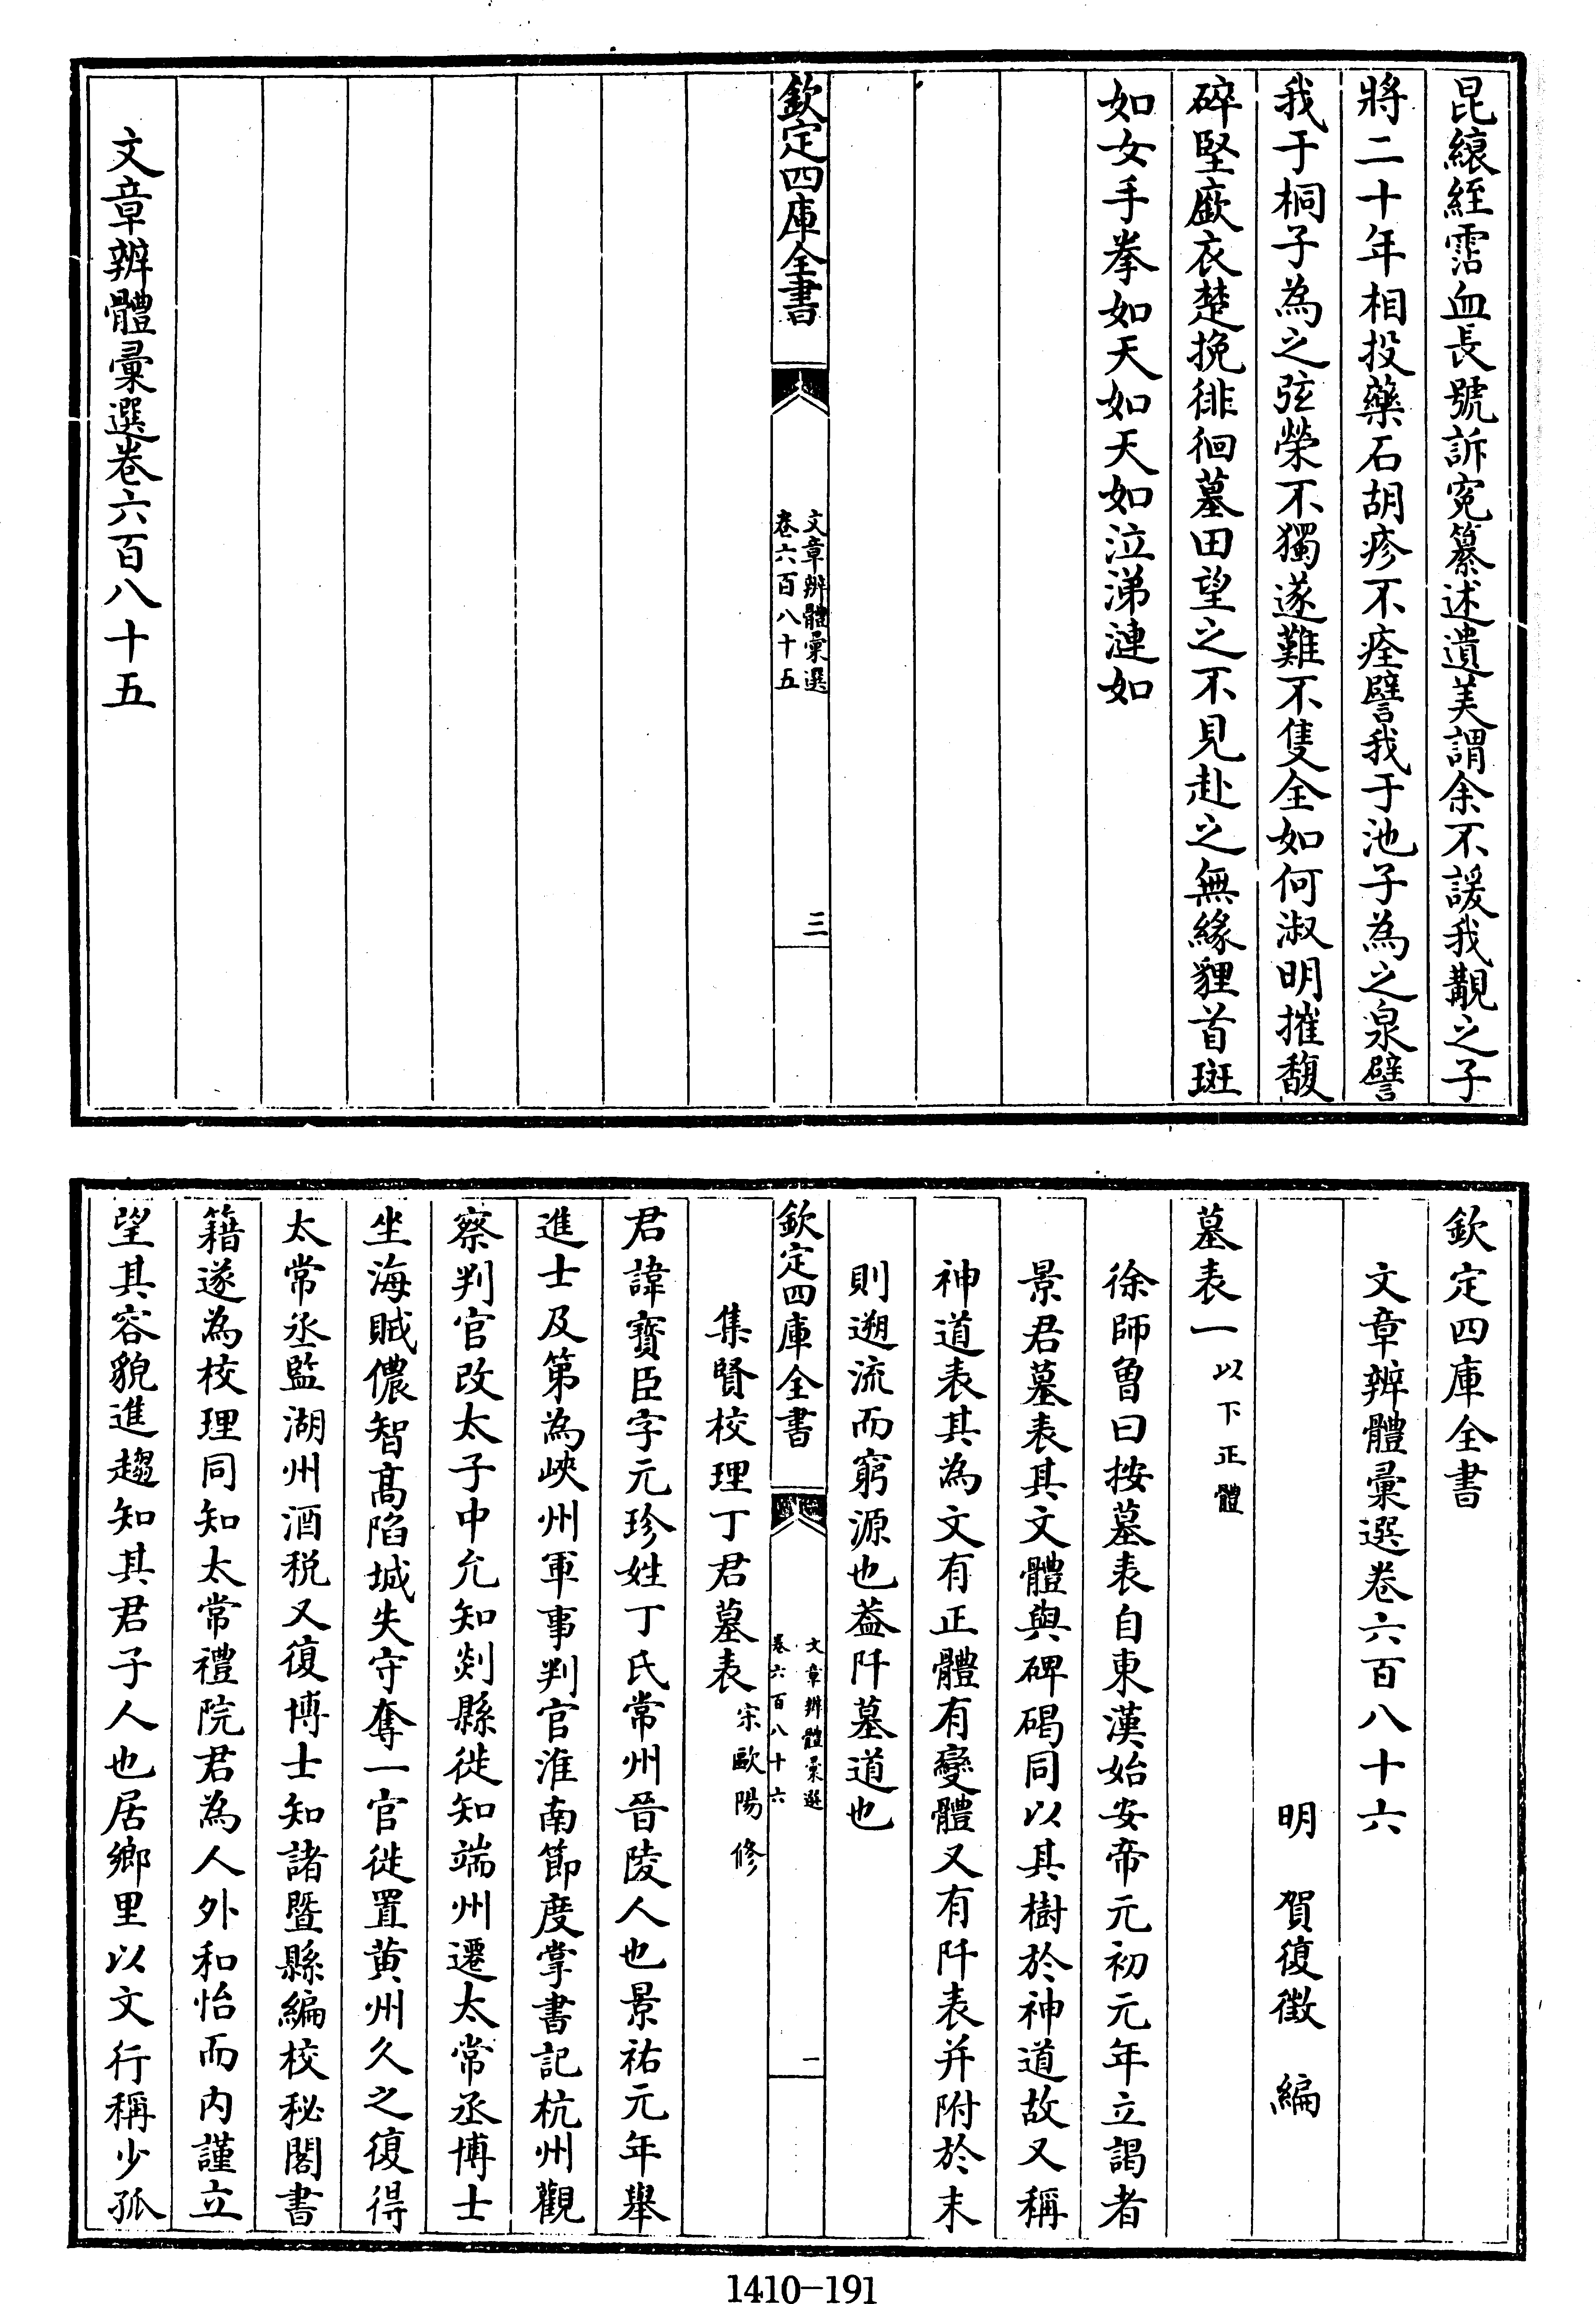 昆縗絰霑血長號訴寃纂述遺美謂余不諼我覯之子
將二十年相投藥石胡疹不痊譬我于池子為之泉譬
我于桐子為之弦榮不獨遂難不隻全如何淑明摧馥
碎堅廞衣楚挽徘徊墓田望之不見赴之無緣貍首斑
如女手拳如天如天如泣涕漣如
欽定四庫全書
文章辨體彙選
卷六百八十五
三
文章辨體彙選卷六百八十五
欽定四庫全書
文章辨體彙選卷六百八十六
明 賀復徵 編
墓表一以下正體
徐師曾曰按墓表自東漢始安帝元初元年立謁者
景君墓表其文體與碑碣同以其樹於神道故又稱
神道表其為文有正體有變體又有阡表并附於末
則遡流而窮源也葢阡墓道也
欽定四庫全書
文章辨體彙選
卷六百八十六
一
集賢校理丁君墓表宋歐陽修
君諱寶臣字元珍姓丁氏常州晉陵人也景祐元年舉
進士及第為峽州軍事判官淮南節度掌書記杭州觀
察判官改太子中允知剡縣徙知端州遷太常丞博士
坐海賊儂智高陷城失守奪一官徙置黄州久之復得
太常丞監湖州酒税又復博士知諸暨縣編校秘閣書
籍遂為校理同知太常禮院君為人外和怡而内謹立
望其容貌進趨知其君子人也居鄉里以文行稱少孤
1410-191